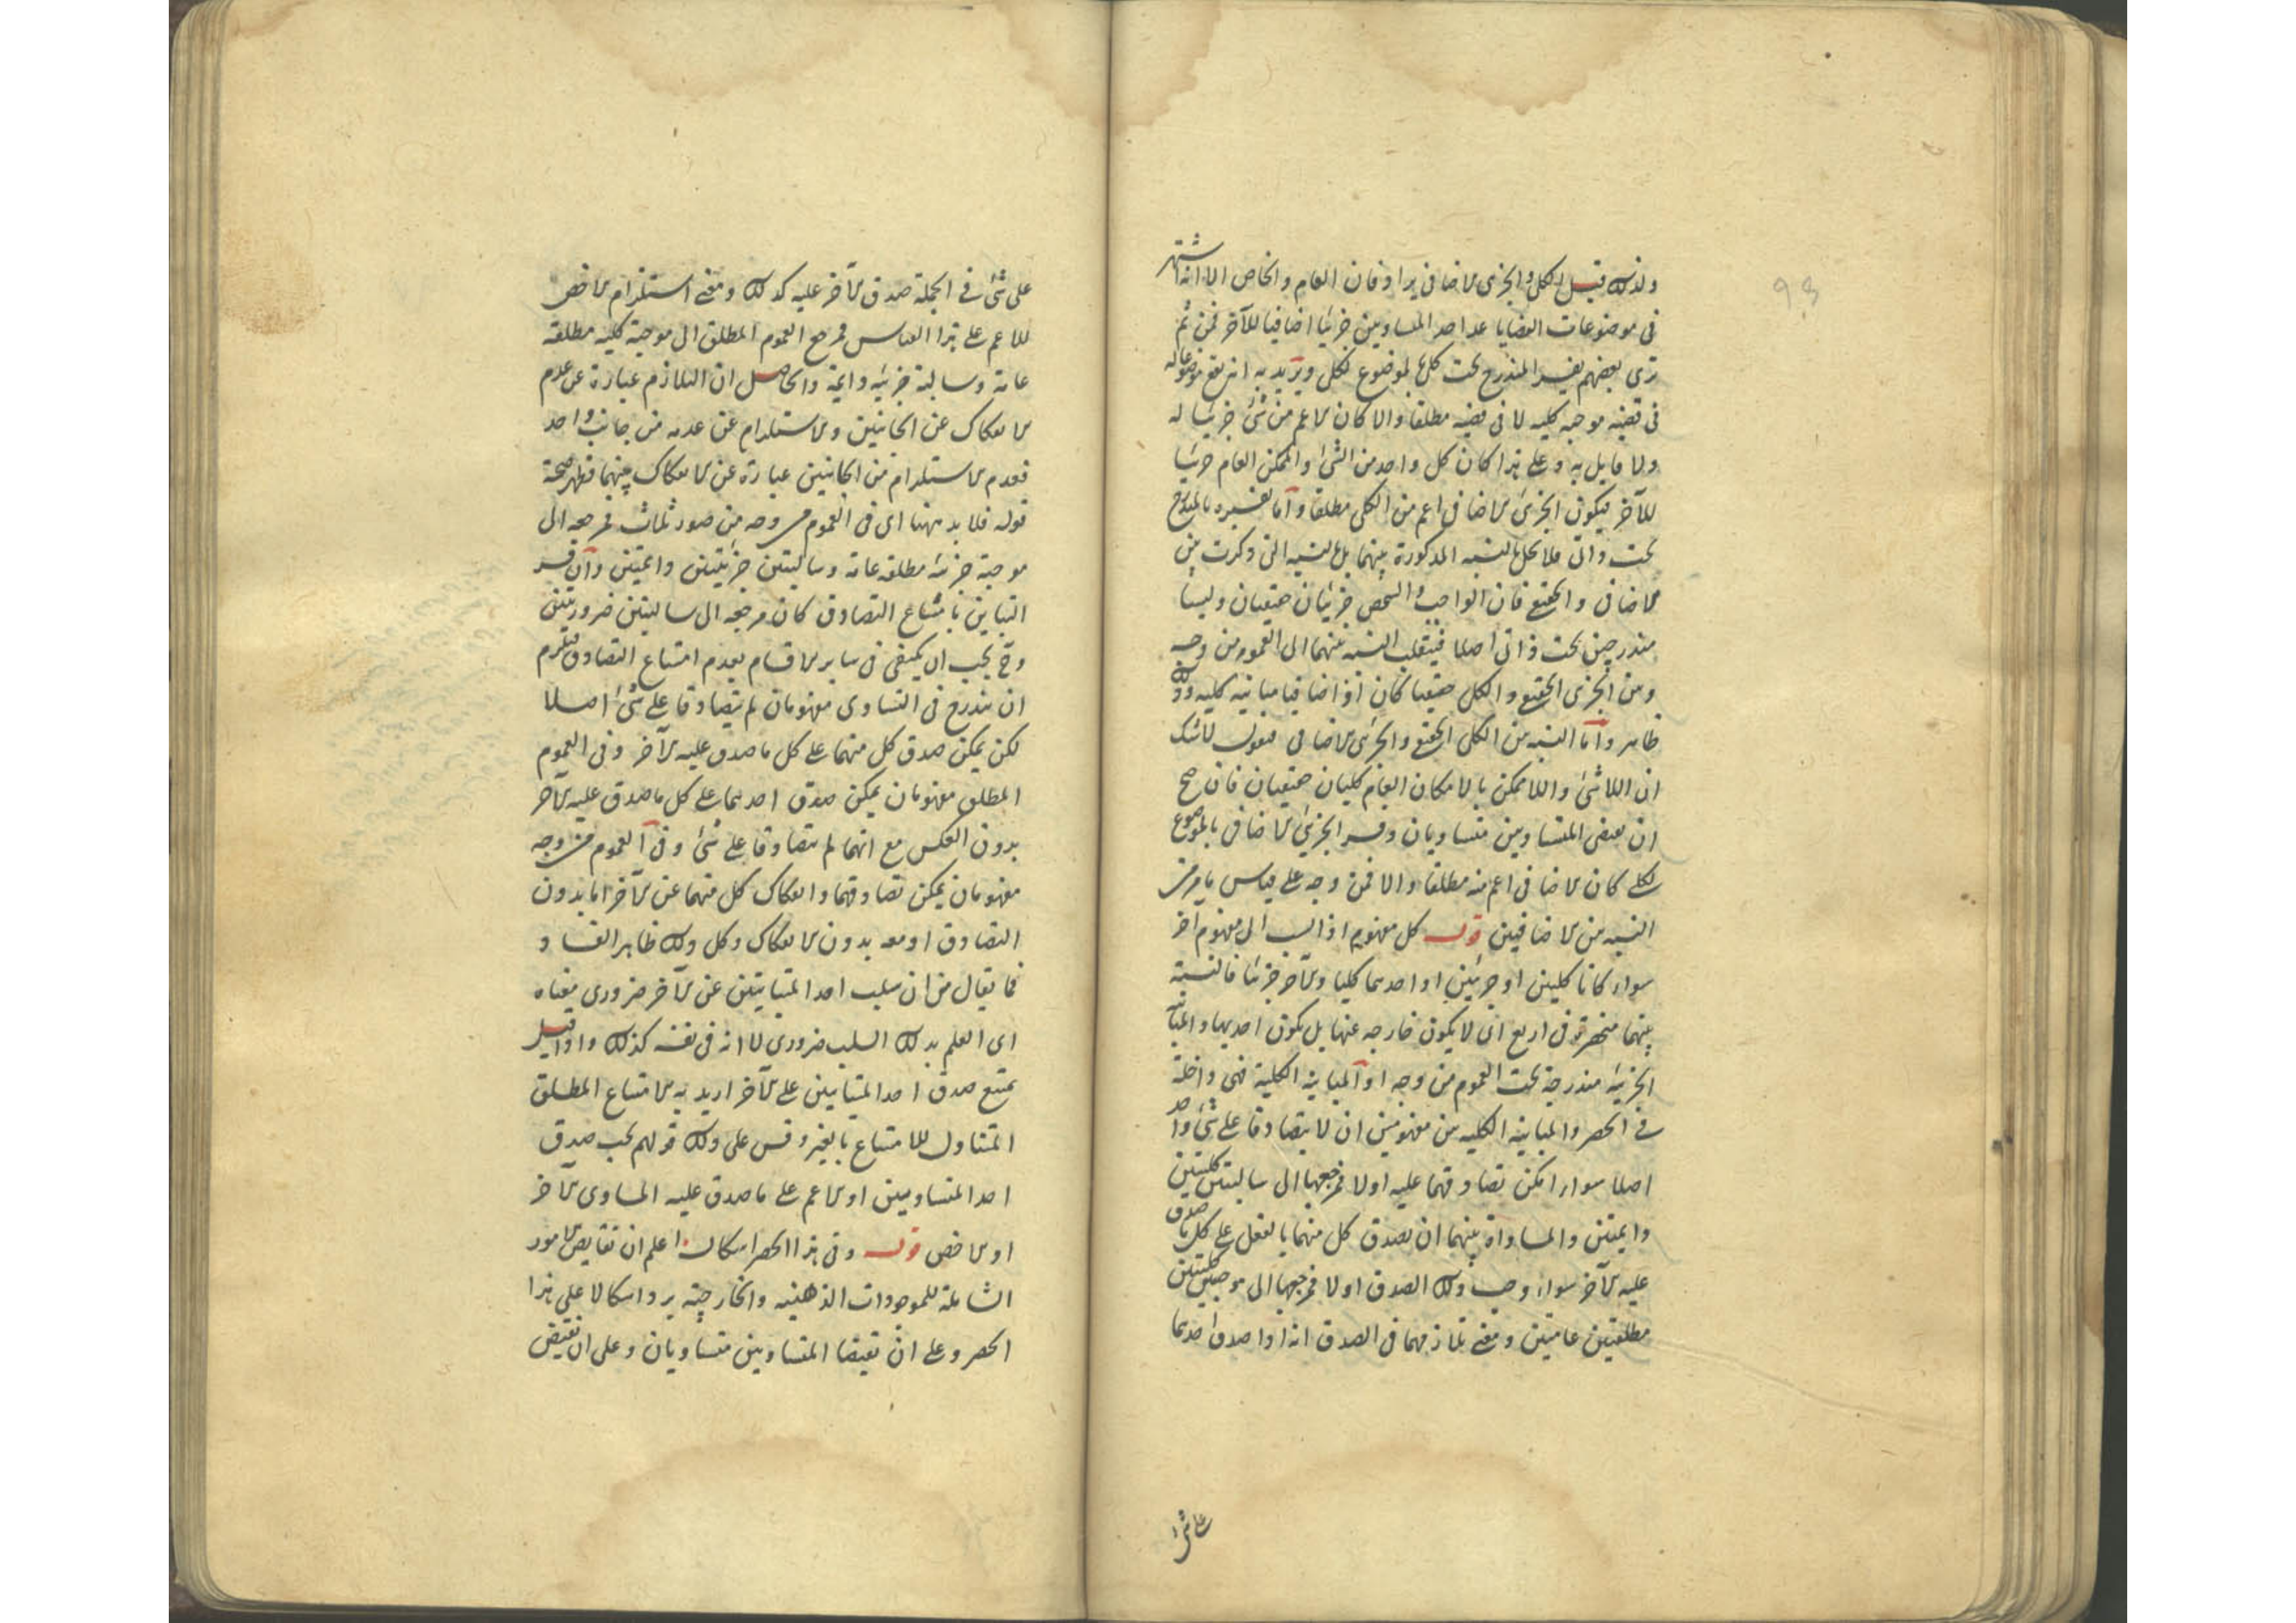 ولذلك قيل الكلى والجزئى الاضافى يرادفان العام والخاص الا انه اشتهر
فى موضوعات القضايا عد احد المتساويين جزئيا اضافيا للآخر فمن ثم
ترى بعضهم يفسر المندرج تحت كلى بالموضوع لكلى ويريد به انه يقع موضوعا له
فى قضية موجبه كليه لا فى قضيه مطلقا والا كان الاعم من شئ جزئيا له
ولا قايل به وعلى هذا كان كل واحد من الشئ والممكن العام جزئيا
للآخر فيكون الجزئى الاضافى اعم من الكلى مطلقا وأما تفسيره بالمندرج
تحت ذاتى فلا تحل النسبه المذكورة بينهما بل النسبه التى ذكرت بين
الاضافى والحقيقى فان الواجب والشخص جزئيان حقيقيان وليسا
مندرجين تحت ذاتى اصلا فينقلب النسبه بينهما الى العموم من وجه
وبين الجزئى الحقيقى والكلى حقيقيا كان او اضافيا مباينه كليه وذلك
ظاهر وأما النسبه بين الكلى الحقيقى والجزئى الاضافى فنقول لا شك
ان اللاشئ واللاممكن بالامكان العام كليان حقيقيان فان صح
ان نقيضى المتساويين متساويان وفسر الجزئى الاضافى بالموضوع
لكلى كان الاضافى اعم منه مطلقا والا فمن وجه على قياس ما مر من
النسبه بين الاضافيين قوله كل مفهوم اذا نسب الى مفهوم آخر
سواء كانا كليين او جزئيين او احدهما كليا والآخر جزئيا فالنسبة
بينهما منحصرة فى اربع اى لا يكون خارجه عنها بل يكون احديها والمباينة
الجزئيه مندرجة تحت العموم من وجه او المباينة الكلية فهى داخلة
فى الحصر والمباينة الكليه بين مفهومين ان لا يتصادقا على شئ واحد
اصلا سواء امكن تصادقهما عليه اولا فمرجعها الى سالبتين كليتين
دايمتين والمساواة بينهما ان يصدق كل منهما بالفعل على كل ما صدق
عليه الآخر سواء وجب ذلك الصدق اولا فمرجعها الى موجبتين كليتين
مطلقتين عامتين ومعنى تلازمهما فى الصدق انه اذا صدق احدهما
على شئ فى الجملة صدق الآخر عليه كذلك ومعنى استلزام الاخص
للاعم على هذا القياس فمرجع العموم المطلق الى موجبة كليه مطلقه
عامة وسالبة جزئيه دايمة والحاصل ان التلازم عبارة عن عدم
الانفكاك عن الجانبين والاستلزام عن عدمه من جانب واحد
فعدم الاستلزام من الجانبين عبارة عن الانفكاك بينهما فظهر صحة
قوله فلا بد ههنا اى فى العموم من وجه من صور ثلاث فمرجعه الى
موجبة جزئيه مطلقه عامة وسالبتين جزئيتين دايمتين وان فسر
التباين بامتناع التصادق كان مرجعه الى سالبتين ضروريتين
وح يجب ان يكتفى فى ساير الاقسام بعدم امتناع التصادق فيلزم
ان يندرج فى التساوى مفهومان لم يتصادقا على شئ اصلا
لكن يمكن صدق كل منهما على كل ما صدق عليه الآخر وفى العموم
المطلق مفهومان يمكن صدق احدهما على كل ما صدق عليه الآخر
بدون العكس مع انهما لم يتصادقا على شئ وفى العموم من وجه
مفهومان يمكن تصادقهما وانفكاك كل منهما عن الآخر اما بدون
التصادق او معه بدون الانفكاك وكل ذلك ظاهر الفساد
فما يقال من ان سلب احد المتباينين عن الآخر ضرورى معناه
اى العلم بذلك السلب ضرورى لا انه فى نفسه كذلك واذا قيل
يمتنع صدق احد المتباينين على الآخر اريد به الامتناع المطلق
المتناول للامتناع بالغير وقس على ذلك قولهم يجب صدق
احد المتساويين او الاعم على ما صدق عليه المساوى الآخر
او الاخص قوله وفى هذا الحصر اشكال اعلم ان نقايض الامور
الشاملة للموجودات الذهنيه والخارجيّة يرد اشكالا على هذا
الحصر وعلى ان نقيضا المتساويين متساويان وعلى ان نقيض